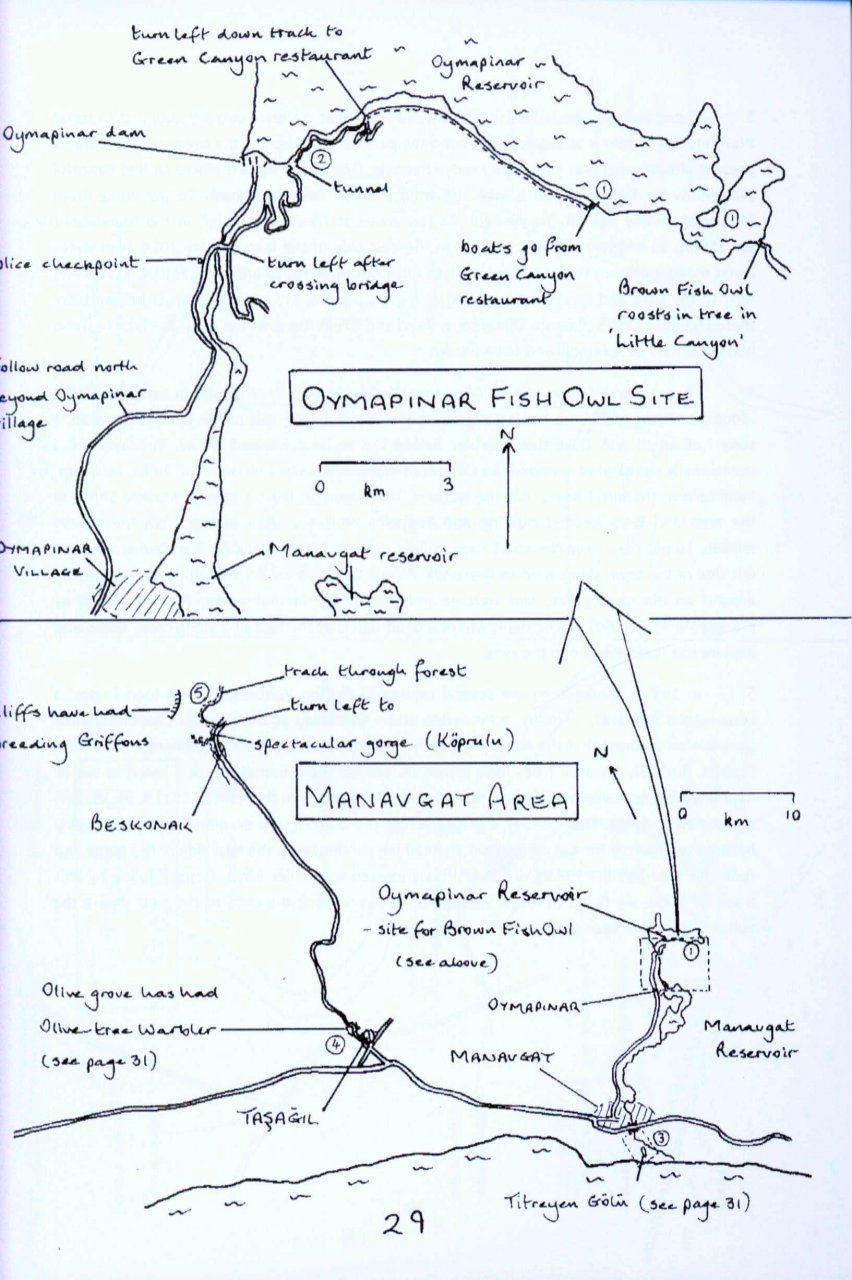 turn left down track to
Green Canyon restaurant
Oymapinar
Reservoir
Oymapinar dam
2
tunnel
1
1
police checkpoint
turn left after
crossing bridge
boats go from
Green Canyon
restaurant
Brown Fish Owl
roosts in tree in
'Little Canyon'
follow road north
beyond Oymapinar
village
OYMAPINAR FISH OWL SITE
N
0 3
km
OYMAPINAR
VILLAGE
Manavgat reservoir
5
track through forest
cliffs have had
breeding Griffons
turn left to
spectacular gorge (Köprulu)
BESKONAK
MANAVGAT AREA
N
0 km 10
Oymapinar Reservoir
- site for Brown Fish Owl
(see above)
1
OYMAPINAR
Olive grove has had
Olive-tree Warbler
(see page 31)
4
MANAVGAT
Manavgat
Reservoir
TAŞAĞIL
3
Titreyen Gölü (see page 31)
29